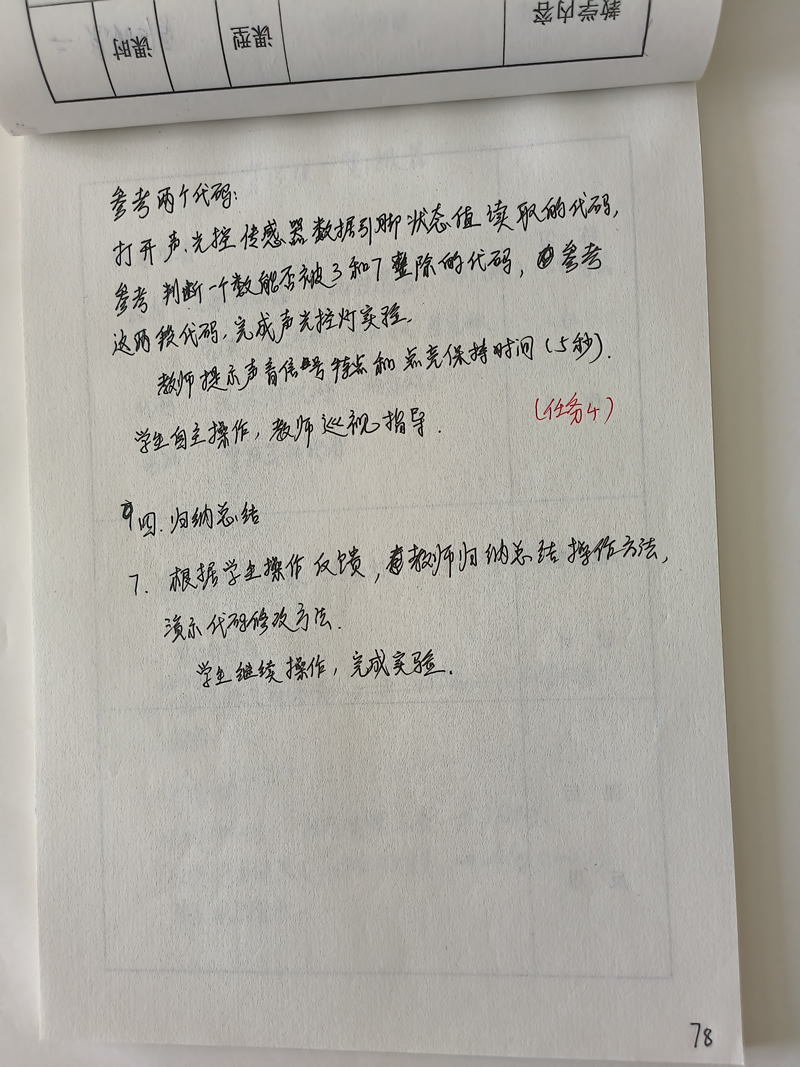 教学内容
课型
课时
参考两个代码:
打开声、光控传感器数据引脚状态值读取的代码,
参考判断一个数能否被3和7整除的代码,参考
这两段代码,完成声光控灯实验.
教师提示声音信号特点和点亮保持时间(5秒).
(任务4)
学生自主操作,教师巡视指导.
四.归纳总结
7. 根据学生操作反馈,教师归纳总结操作方法,
演示代码修改方法.
学生继续操作,完成实验.
78